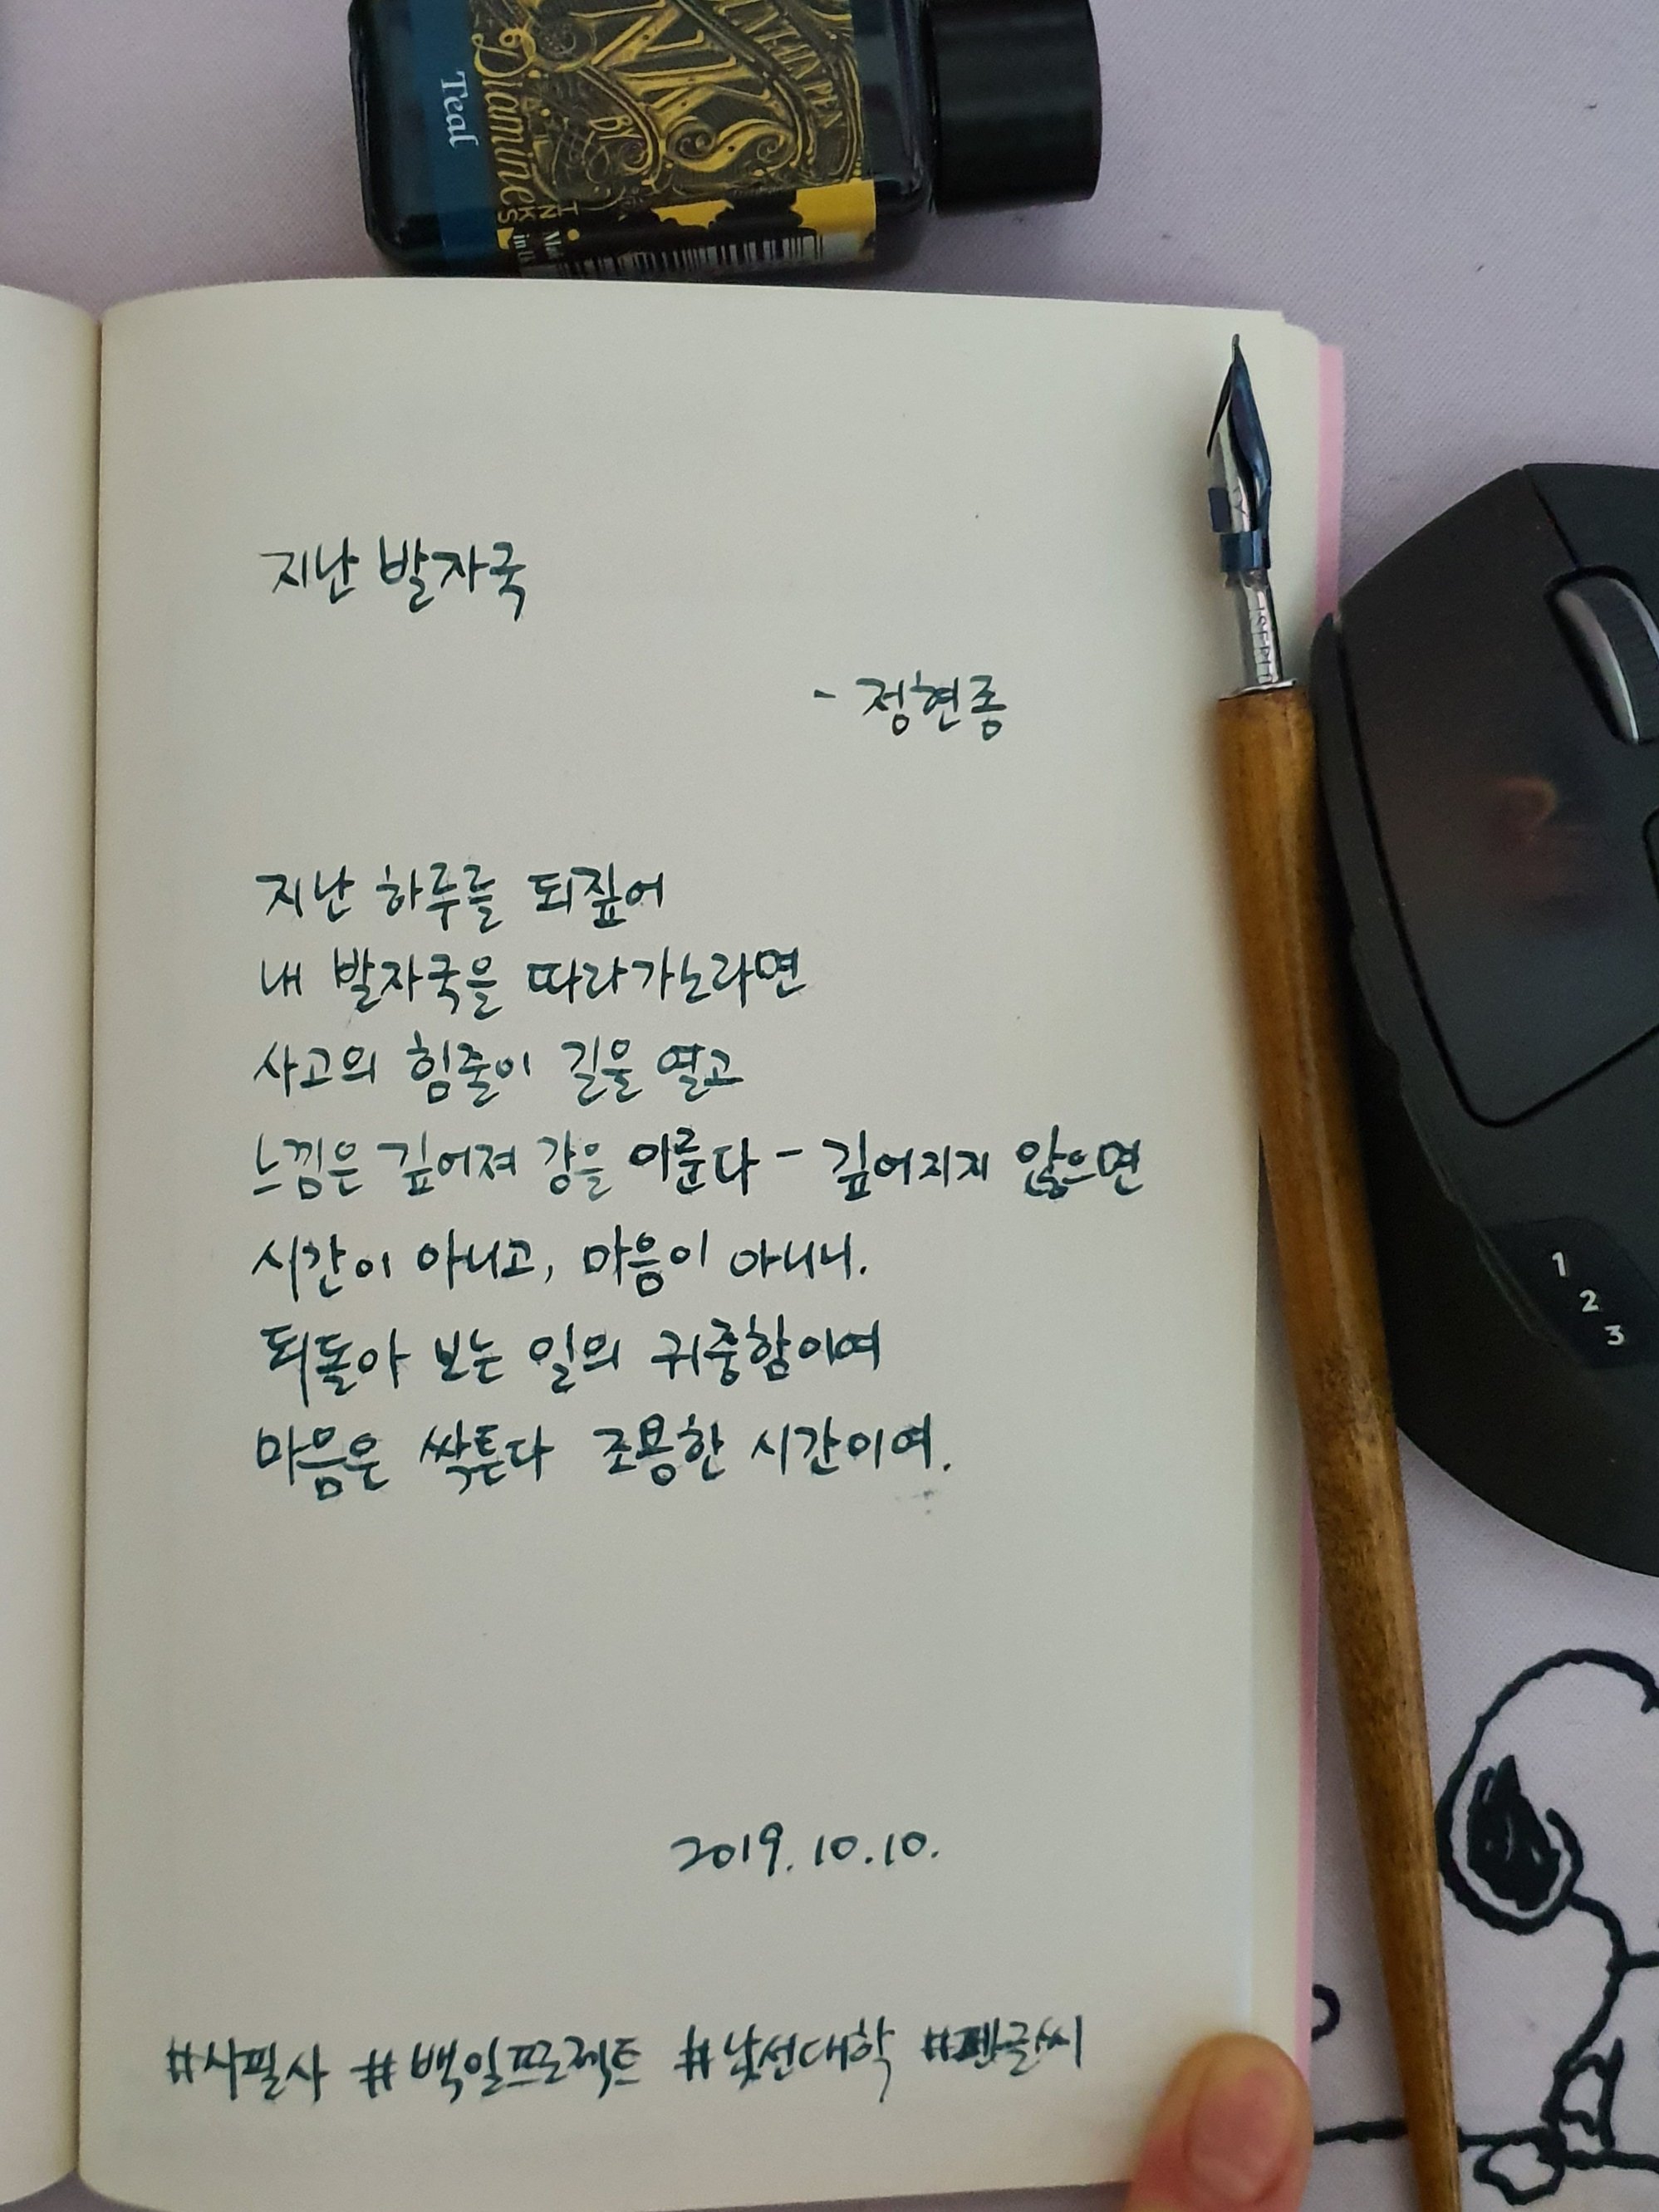 Teal
Diamine
INKS
BY
지난 발자국
- 정현종
지난 하루를 되짚어
내 발자국을 따라가노라면
사고의 힘줄이 길을 열고
느낌은 깊어져 강을 이룬다 - 깊어지지 않으면
시간이 아니고, 마음이 아니니.
되돌아 보는 일의 귀중함이여
마음은 싹튼다 조용한 시간이여.
2019. 10. 10.
#시필사 #백일프로젝트 #낯선대학 #펜글씨
1
2
3